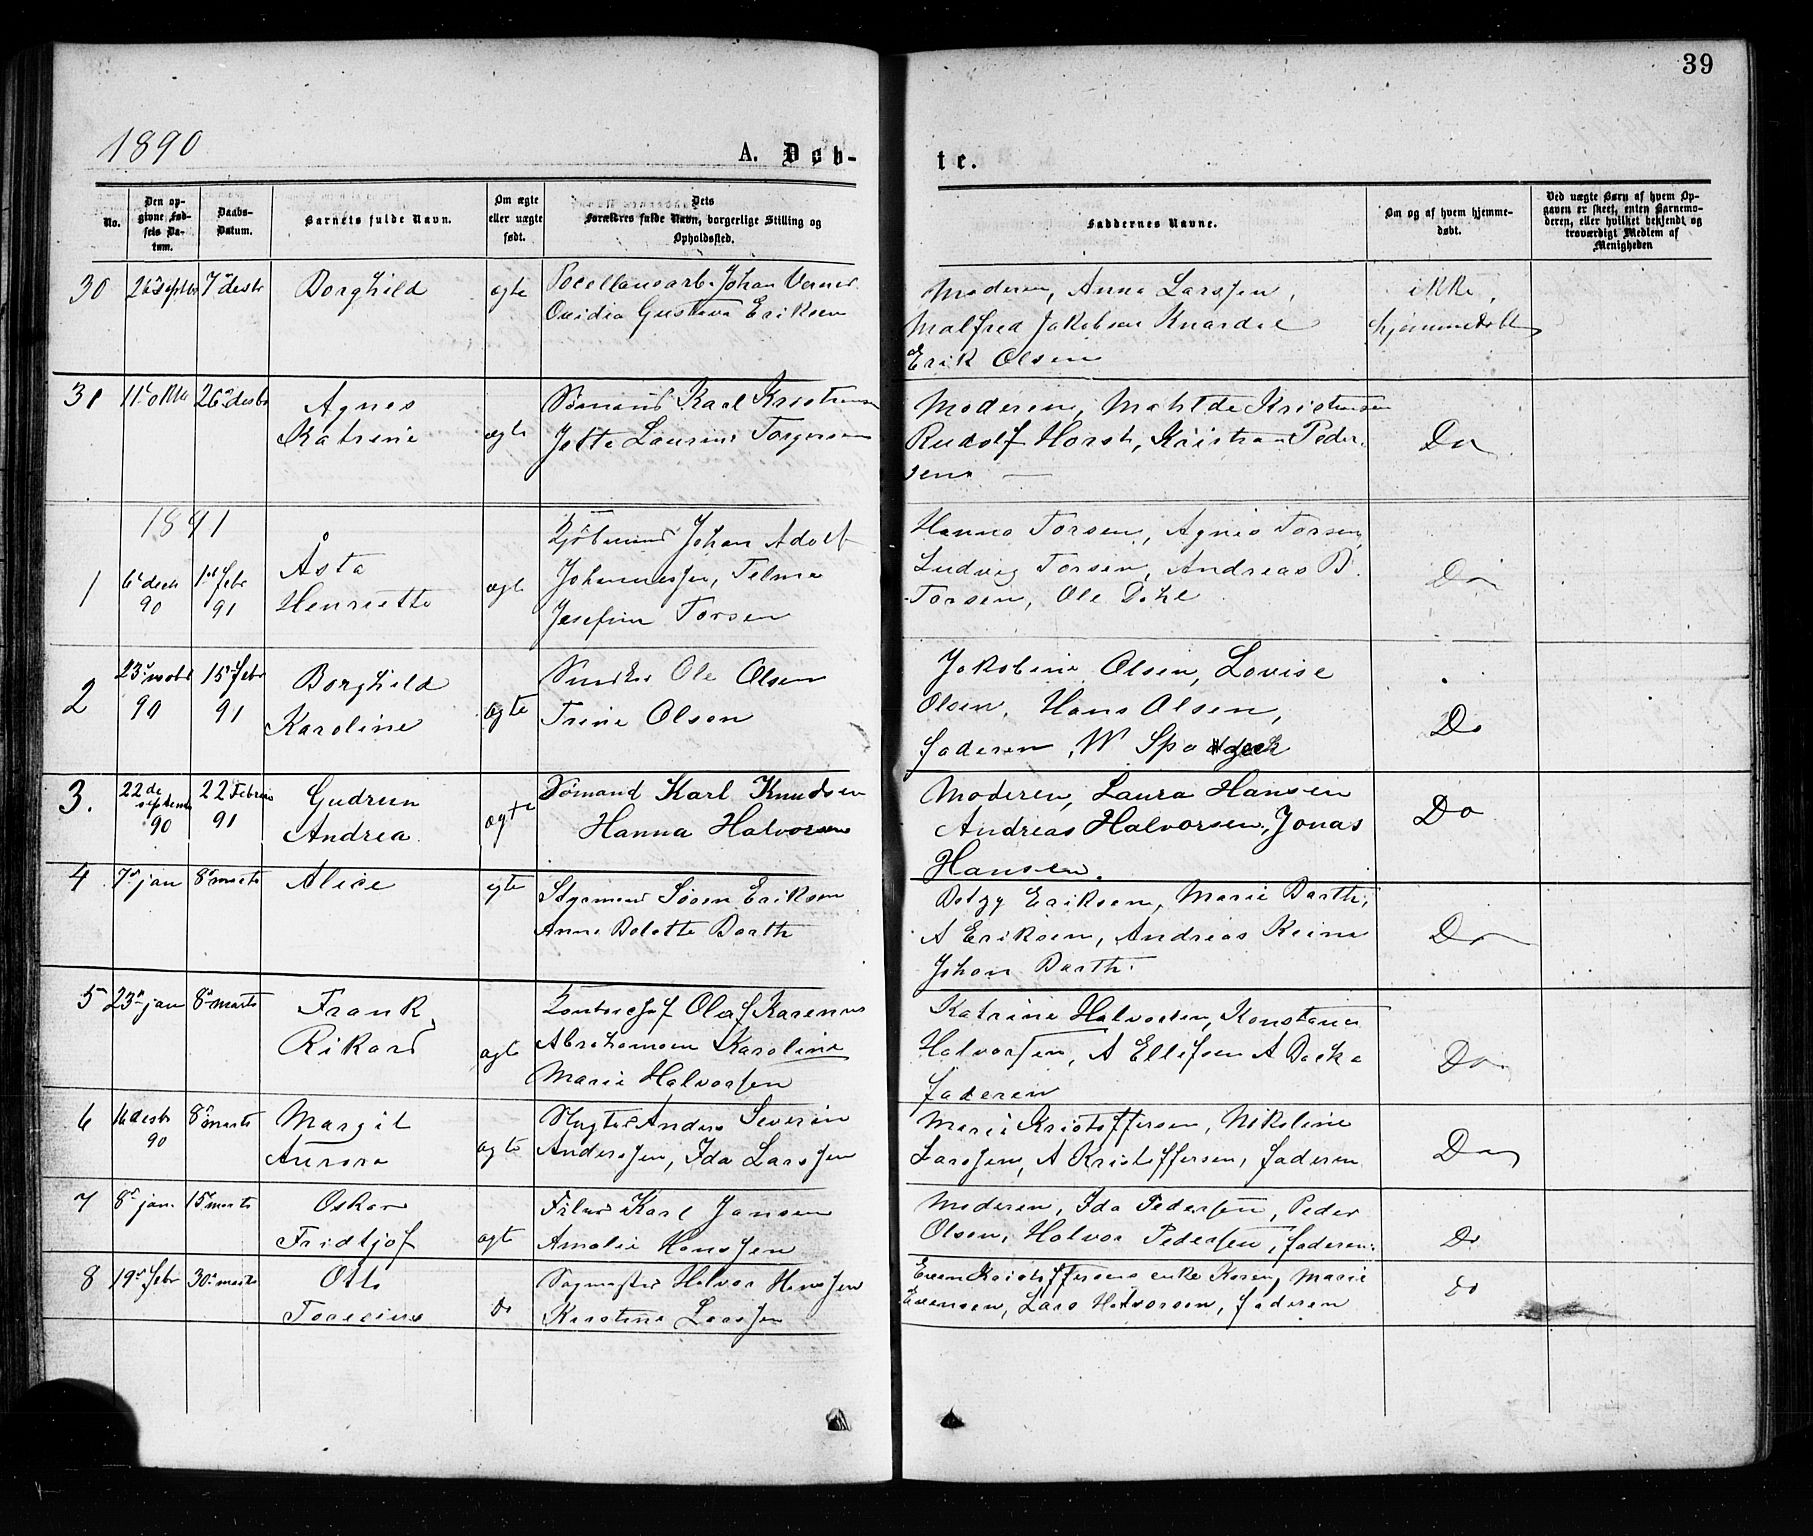 39
1890
A. Døb-
te.
No.
Den op-
givne Fød-
sels Da-
tum.
Daabs-
Datum.
Barnets fulde Navn.
Om ægte
eller uægte
født.
Dets
Forældres fulde Navn, borgerlige Stilling og
Opholdssted.
Faddernes Navne.
Om og af hvem hjemme-
døbt.
Ved uægte Børn af hvem Op-
gaven er skeet, enten Barnemo-
deren, eller hvilket bekjendt og
troværdigt Medlem af
Menigheden
30 26 septbr 7 desbr Borghild ægte Johan Verner
Ovidia Gustava Eriksen
Moderen, Anna Larssen,
Malfred Jakobsen Knardal
Erik Olsen
ikke
hjemmedøbt
31 11 okt 26 desbr Agnes
Katrine
ægte
Sømand Karl Kristensen
Jette Laurine Torgersen
Moderen, Matilde Kristensen
Rudolf Horst, Kristian Peder-
sen
Do
1891
1 6 decb
90
1st febr
91
Åsta
Henriette
ægte
Johan Adolf
Johannessen, Telma
Josefine Torsen
Hanna Torsen, Agnes Torsen,
Ludvig Torsen, Andreas B.
Torsen, Ole Dehl
Do
2 23 nobr
90
15 febr
91
Borghild
Karoline
ægte
Snedker Ole Olsen
Trine Olsen
Jakobine Olsen, Lovise
Olsen, Hans Olsen,
faderen, W
Do
3. 22de
septembr
90
22 Febru
91
Gudrun
Andrea
ægte
Sømand Karl Knudsen
Hanna Halvorsen
Moderen, Laura Hansen
Andreas Halvorsen, Jonas
Hansen.
Do
4 7 jan 8 marts Alice ægte
Søren Eriksen
Anne Bolette Barth
Betzy Eriksen, Marie Barth,
A Eriksen, Andreas
Johan Barth
Do
5 23 jan 8 marts Frank
Rikard
ægte
Olaf Karenius
Abrahamsen Karoline
Marie Halvorsen
Katrine Halvorsen, Konstance
Halvorsen, A Ellifsen A
faderen
Do
6 16 desbr
90
8 marts
Margit
Aurora
ægte
Slagter Anders Severin
Anderssen, Ida Larssen
Marie Kristoffersen, Nikoline
Larssen, A Kristoffersen, faderen
Do
7 8 jan. 15 marts Oskar
Fridtjof
ægte
Filer Karl Jansen
Amalie Hanssen
Moderen, Ida Pedersen, Peder
Olsen, Halvor Pedersen, faderen.
Do
8 19 febr 30 marts Otto
Do
Sagmester Halvor Hanssen
Kirstine Larssen
Even Kristoffersens enke Karen, Marie
Evensen, Lars Halvorsen, faderen
Do